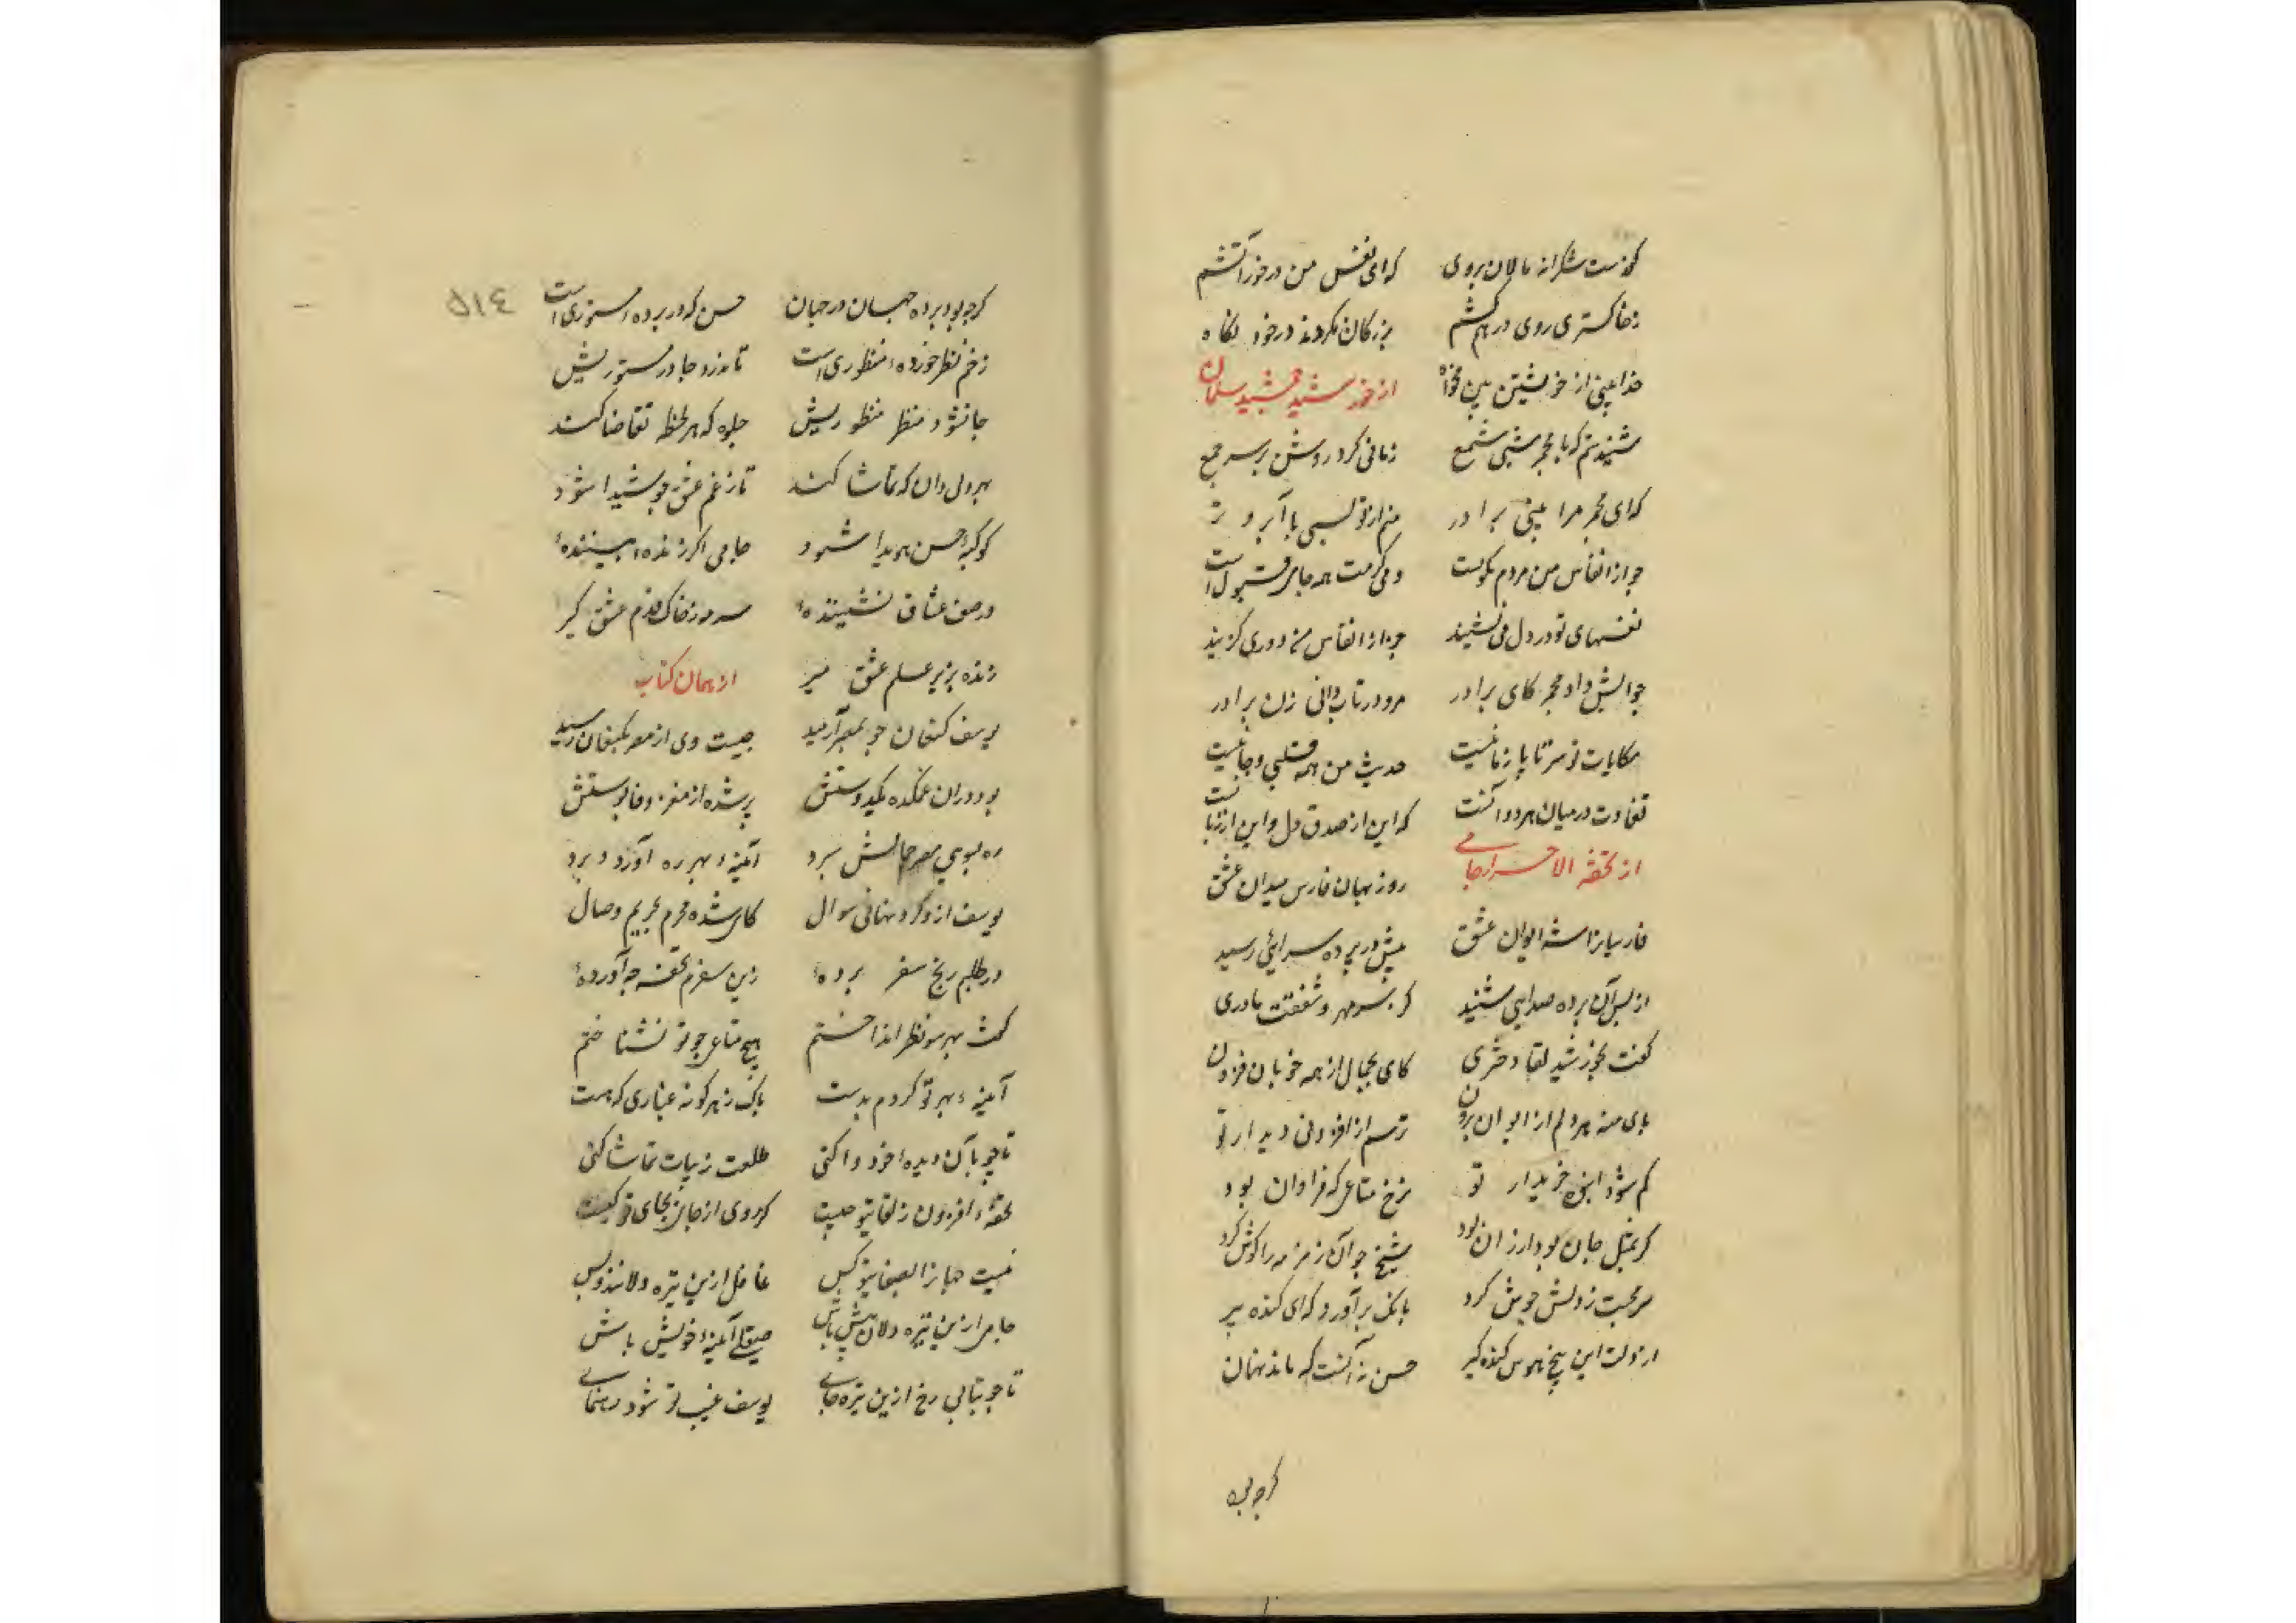 گفت شکرانه مالان بروی که ای نفس من درخور آتشم
زخاکستری روی درهم کشم بزرگان نکردند در خود نگاه
خدا بینی از خویشتن بین مخواه از خورشید جمشید سلمان
شنیدستم که با مجمر شبی شمع زمانی کرد روشن بر سر جمع
که ای مجمر مرا بینی برادر منم از تو بسی با آبرو تر
چو از انفاس من مردم همه جا قبول است
نفسهای تو در دل می نشیند چو از انفاس من دوری گزیند
جوابش داد مجمر کای برادر مرو در تاب دانی زان برادر
حکایات تو سر تا پا زبانیست حدیث من همه قلبی و جانیست
تفاوت در میان هر دو آنست که این از صدق دل و این از زبانست
از تحفة الاحرار جامی روزبهان فارس میدان عشق
فارسیانرا شه ایوان عشق پیش در پرده سرایی رسید
از پس آن پرده صدایی شنید کز سر مهر و شفقت مادری
گفت بخورشید لقا دختری کای بجمال از همه خوبان فزون
پای منه هر دم از ایوان برون ترسم از افزونی دیدار تو
کم شود انبوه خریدار تو نرخ متاعی که فراوان بود
گر بمثل جان بود ارزان بود شیخ چو آن زمزمه را گوش کرد
سر محبت ز دلش جوش کرد بانگ برآورد که ای کنده پیر
از دلت این بیخ هوس کنده گیر حسن نه آنست که ماند نهان
گرچه بود
گرچه بود پرده جهان در جهان حسن که در پرده مستوری است
زخم نظر خورده منظوری است تا ندرد چادر مستوریش
جا نشود منظر منظوریش جلوه که هر لحظه تقاضا کند
بهر دلی دان که تماشا کند تا ز غم عشق چو شیدا شود
کوکبه حسن هویدا شود جامی اگر زنده بیننده
در صف عشاق نشیننده سرمه ز خاک قدم عشق گیر
زنده بزیر علم عشق میر از همان کتاب
یوسف کنعان چو بمصر آرمید صیت وی از مصر بکنعان رسید
بود در آن غمکده یک دوستش پر شده از مغز وفا پوستش
ره بسوی مصر جمالش سپرد آینه بهر ره آورد برد
یوسف ازو کرد نهانی سوال کای شده محرم بحریم وصال
در طلبم رنج سفر برده زین سفرم تحفه چه آورده
گفت بهر سو نظر انداختم هیچ متاعی چو تو نشناختم
آینه بهر تو کردم بدست پاک ز هر گونه غباری که هست
تا چو بآن دیده خود وا کنی طلعت زیبات تماشا کنی
تحفه افزون ز لقای تو چیست گر روی از جای بجای تو کیست
نیست جهانرا بصفای تو کس غافل ازین تیره دلانند و بس
جامی ازین تیره دلان پیش باش صیقلی آینه خویش باش
تا چو بتابی رخ ازین تیره جای یوسف غیب تو شود رهنمای